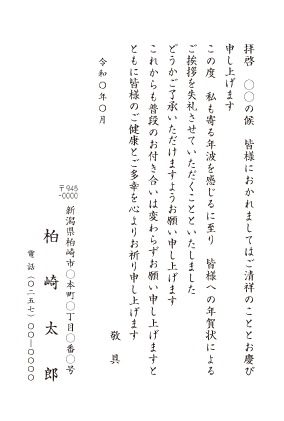 拝啓　〇〇の候　皆様におかれましてはご清祥のこととお慶び
申し上げます
この度　私も寄る年波を感じるに至り　皆様への年賀状による
ご挨拶を失礼させていただくことといたしました
どうかご了承いただけますようお願い申し上げます
これからも普段のお付き合いは変わらずお願い申し上げますと
ともに皆様のご健康とご多幸を心よりお祈り申し上げます
敬具
令和〇年〇月
〒945-0000
新潟県柏崎市〇本町〇丁目〇番〇号
柏崎太郎
電話(〇二五七)〇〇ー〇〇〇〇